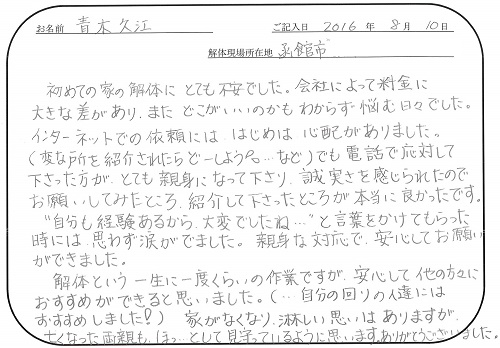 お名前 青木久江 ご記入日 2016 年 8 月 10 日
解体現場所在地 函館市
初めての家の解体に とても不安でした。会社によって料金に
大きな差があり、また どこがいいのかもわからず 悩む日々でした。
インターネットでの依頼には はじめは 心配がありました。
(変な所を紹介されたらどーしよう…など)でも電話で応対して
下さった方が、とても親身になって下さり、誠実さを感じられたので
お願いしてみたところ、紹介して下さったところが本当に良かったです。
"自分も経験あるから、大変でしたね…"と言葉をかけてもらった
時には 思わず涙がでました。 親身な対応で、安心してお願い
ができました。
解体という 一生に一度くらいの作業ですが、安心して 他の方々に
おすすめができると思いました。(… 自分の回りの人達には
おすすめしました!) 家がなくなり、淋しい思いは ありますが、
亡くなった両親も、ほっ…として見守っているように思います。ありがとうございました。